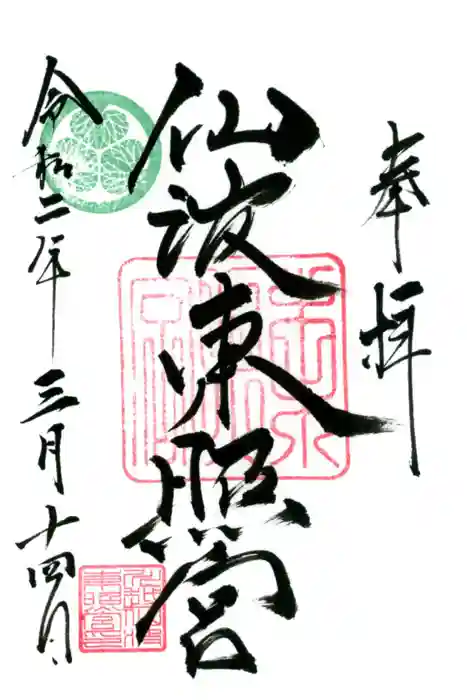 奉拝
仙波東照宮
令和二年三月十四日